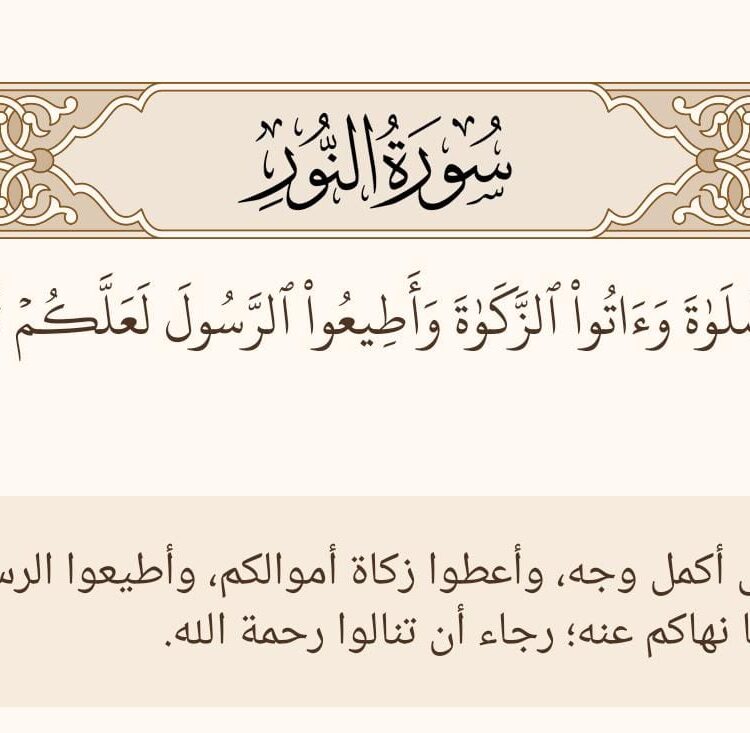 سُورَةُ النُّورِ
وَءَاتُوا۟ ٱلزَّكَوٰةَ وَأَطِيعُوا۟ ٱلرَّسُولَ لَعَلَّكُمْ
أكمل وجه، وأعطوا زكاة أموالكم، وأطيعوا
نهاكم عنه؛ رجاء أن تنالوا رحمة الله.